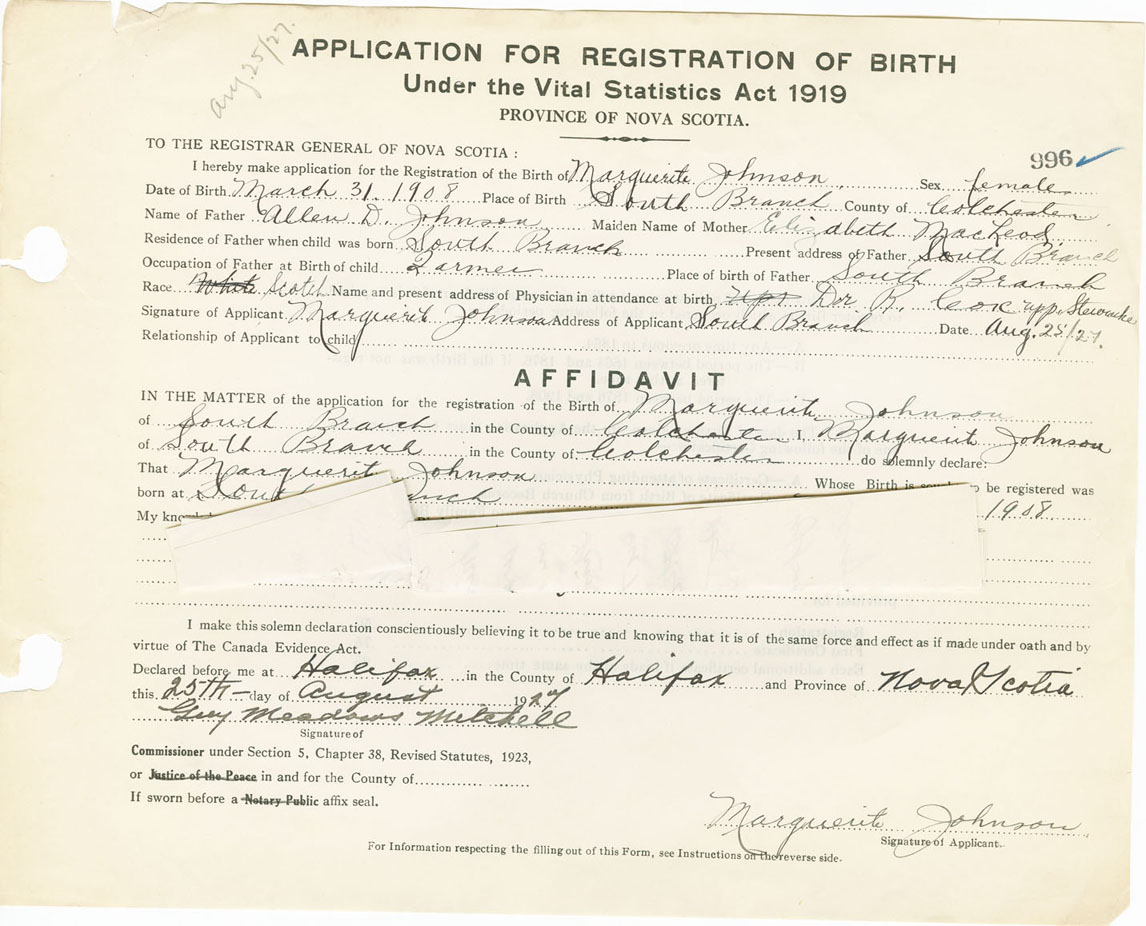 Aug 25/27.
APPLICATION FOR REGISTRATION OF BIRTH
Under the Vital Statistics Act 1919
PROVINCE OF NOVA SCOTIA.
TO THE REGISTRAR GENERAL OF NOVA SCOTIA :
996
I hereby make application for the Registration of the Birth of Marguerite Johnson Sex female
Date of Birth March 31, 1908 Place of Birth South Branch County of Colchester
Name of Father Allen D. Johnson Maiden Name of Mother Elizabeth MacLeod
Residence of Father when child was born South Branch Present address of Father South Branch
Occupation of Father at Birth of child Farmer Place of birth of Father South Branch
Race White Scotch Name and present address of Physician in attendance at birth Dor R. Cox upp. Stewiacke
Signature of Applicant Marguerite Johnson Address of Applicant South Branch Date Aug. 25/27.
Relationship of Applicant to child
AFFIDAVIT
IN THE MATTER of the application for the registration of the Birth of Marguerite Johnson
of South Branch in the County of Colchester I, Marguerite Johnson
of South Branch in the County of Colchester do solemnly declare:
That Marguerite Johnson Whose Birth is to be registered was
born at South
My 1908
I make this solemn declaration conscientiously believing it to be true and knowing that it is of the same force and effect as if made under oath and by
virtue of The Canada Evidence Act.
Declared before me at Halifax in the County of Halifax and Province of Nova Scotia
this 25TH day of August 1927
Guy Meadows Mitchell
Signature of
Commissioner under Section 5, Chapter 38, Revised Statutes, 1923,
or Justice of the Peace in and for the County of
If sworn before a Notary Public affix seal.
Marguerite Johnson
Signature of Applicant.
For Information respecting the filling out of this Form, see Instructions on the reverse side.